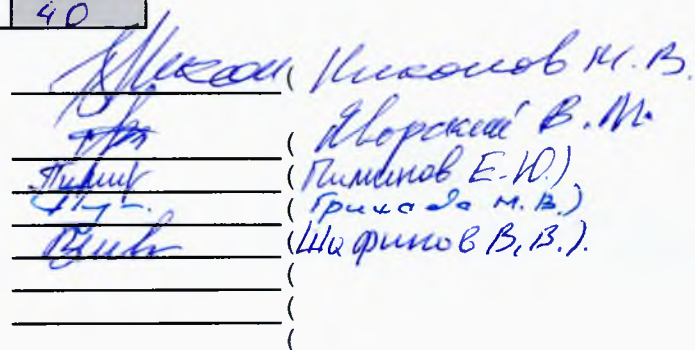 40
( Никонов М.В.
( Яворский В.М.
( Пиминов Е.Ю.)
( Грихада М.В.)
(Шафиков В.В.).
(
(
(